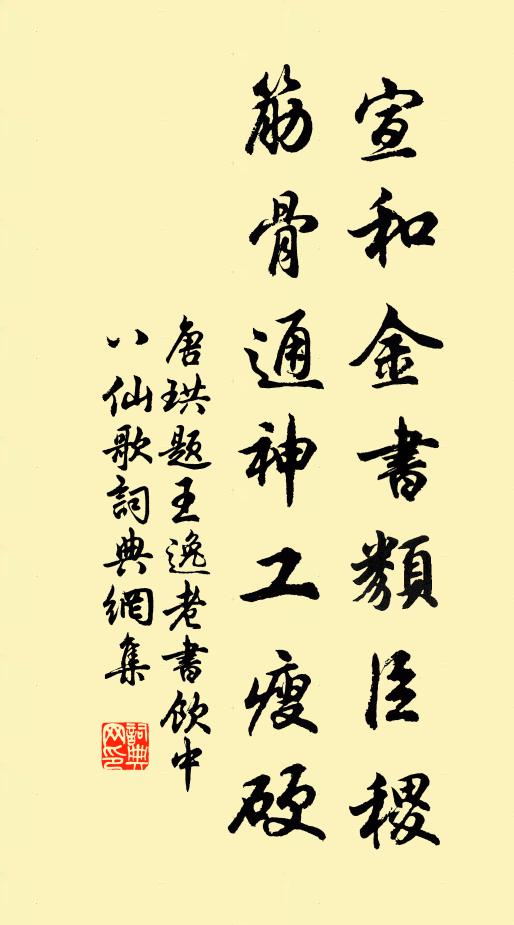 宣和金書類臣稷
筋骨通神工瘦硬
唐珙題王逸老書飲中
八仙歌詞典網集
詞典網印